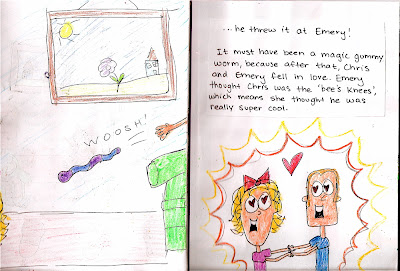 WOOSH!
...he threw it at Emery!
It must have been a magic gummy
worm, because after that, Chris
and Emery fell in love. Emery
thought Chris was the 'bee's knees',
which means she thought he was
really super cool.